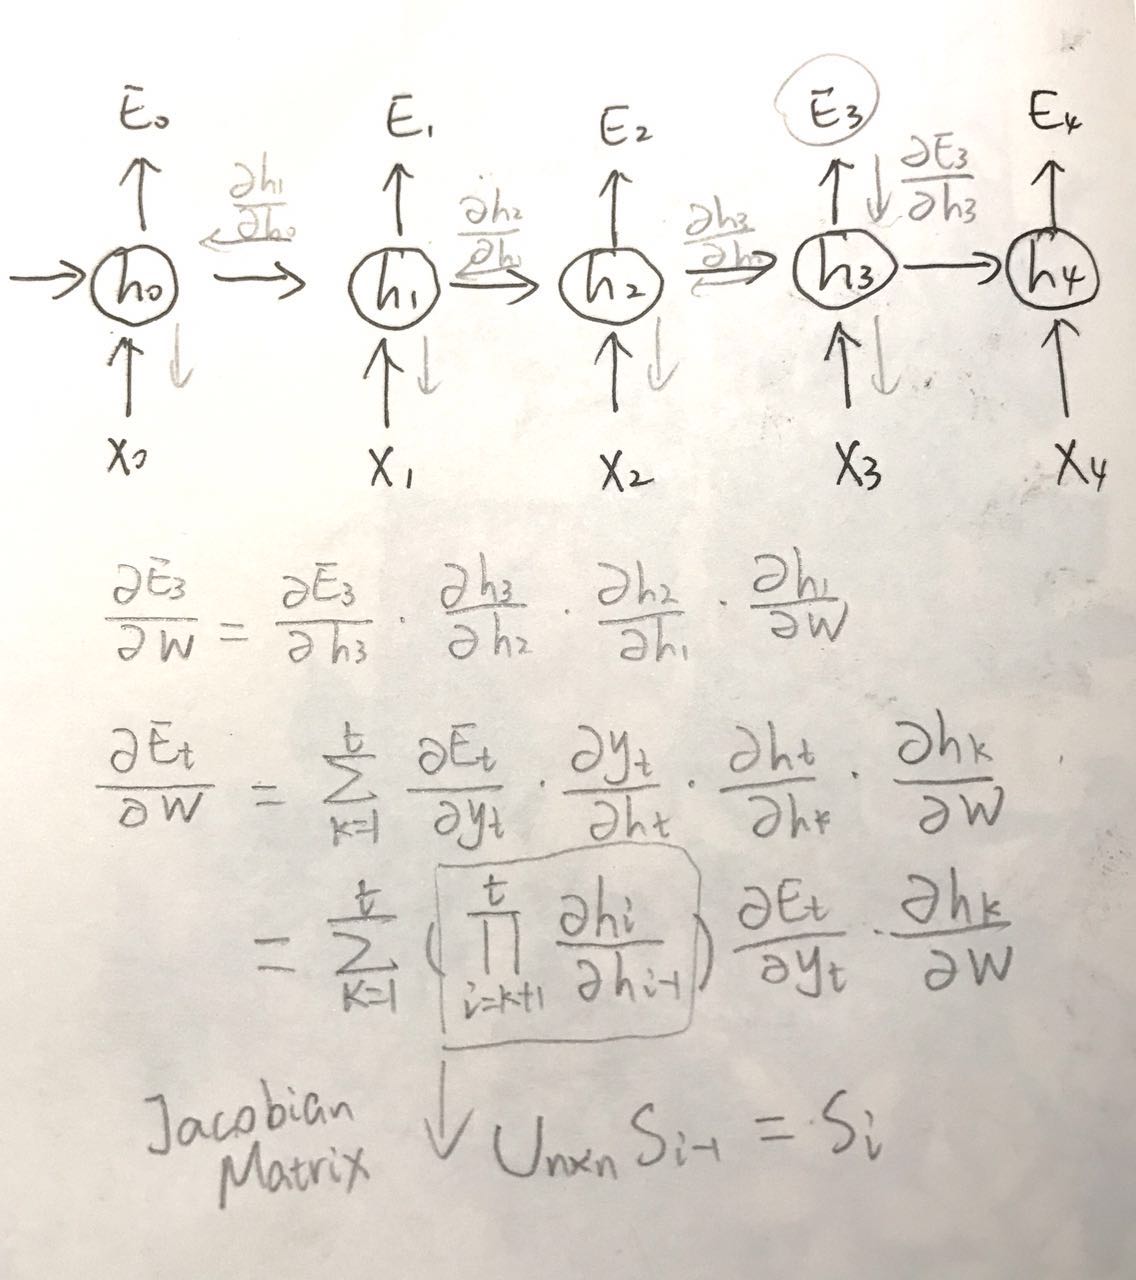 E₀ E₁ E₂ E₃ E₄
∂h₁/∂h₀ ∂h₂/∂h₁ ∂h₃/∂h₂ ∂E₃/∂h₃
h₀ h₁ h₂ h₃ h₄
X₀ X₁ X₂ X₃ X₄
∂E₃/∂W = ∂E₃/∂h₃ · ∂h₃/∂h₂ · ∂h₂/∂h₁ · ∂h₁/∂W
∂Eₜ/∂W = ∑ₖ₌₁ᵗ ∂Eₜ/∂yₜ · ∂yₜ/∂hₜ · ∂hₜ/∂hₖ · ∂hₖ/∂W
= ∑ₖ₌₁ᵗ (∏ᵢ₌ₖ₊₁ᵗ ∂hᵢ/∂hᵢ₋₁) ∂Eₜ/∂yₜ · ∂hₖ/∂W
Jacobian
Matrix
Uₙₓₙ Sᵢ₋₁ = Sᵢ